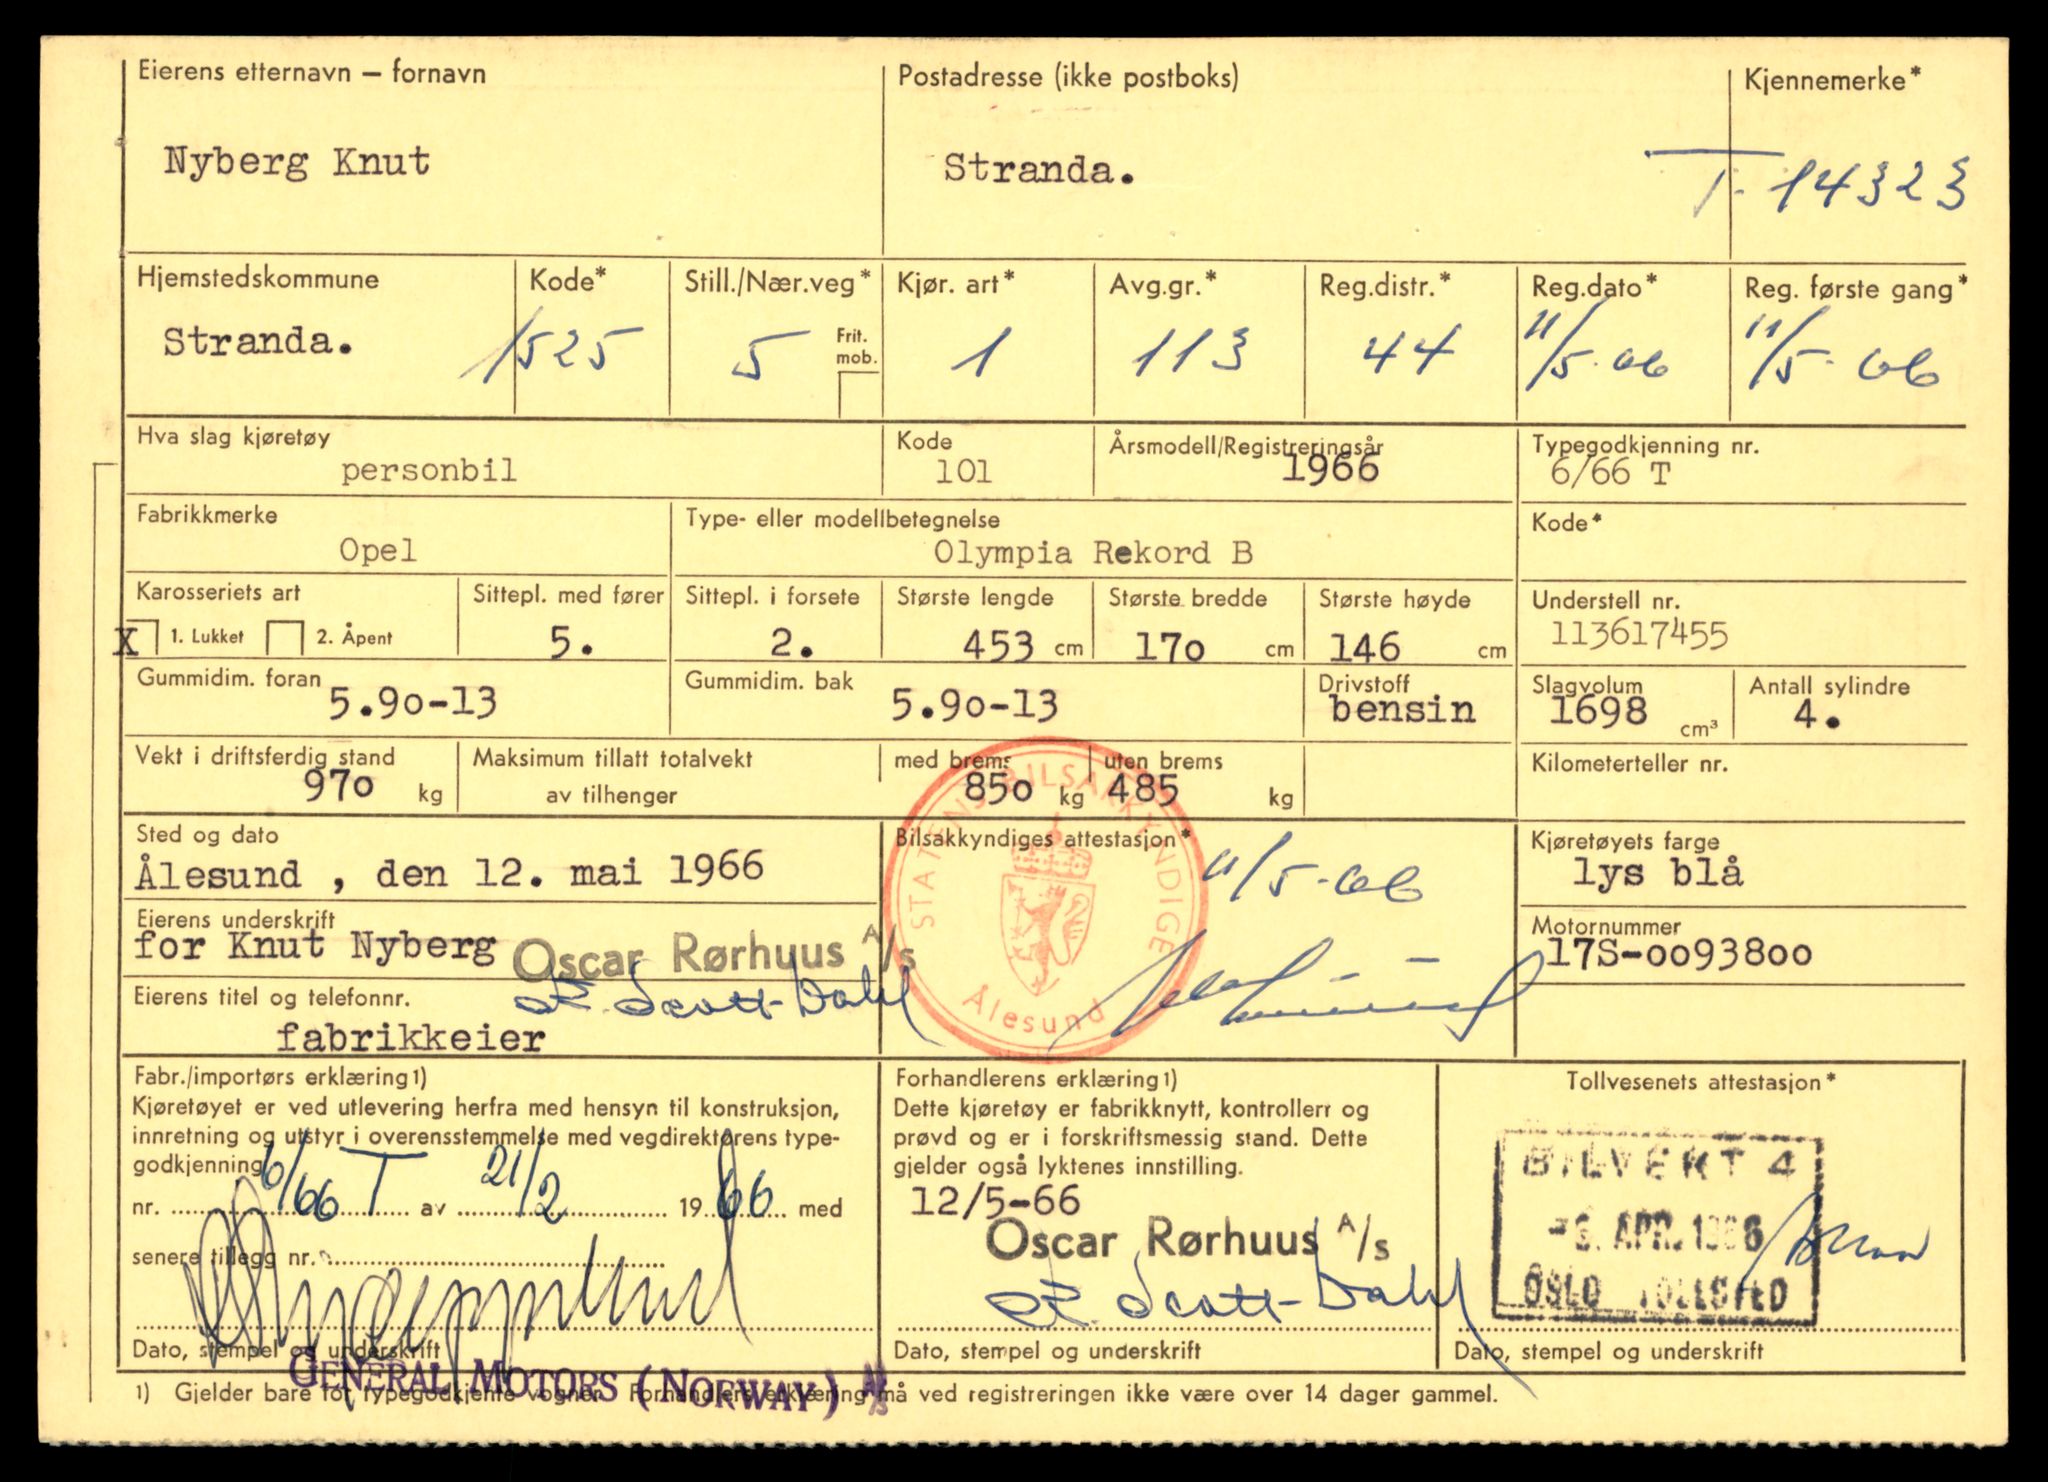 Eierens etternavn — fornavn
Nyberg Knut
Postadresse (ikke postboks)
Stranda.
Kjennemerke*
T-14323
Hjemstedskommune
Stranda.
Kode*
1525
Still./Nær.veg*
5
Frit. mob.
Kjør. art*
1
Avg.gr.*
113
Reg.distr.*
44
Reg.dato*
11/5-66
Reg. første gang*
11/5-66
Hva slag kjøretøy
personbil
Kode
101
Årsmodell/Registreringsår
1966
Typegodkjenning nr.
6/66 T
Fabrikkmerke
Opel
Type- eller modellbetegnelse
Olympia Rekord B
Kode*
Karosseriets art
X 1. Lukket 2. Åpent
Sittepl. med fører
5.
Sittepl. i forsete
2.
Største lengde
453 cm
Største bredde
170 cm
Største høyde
146 cm
Understell nr.
113617455
Gummidim. foran
5.90-13
Gummidim. bak
5.90-13
Drivstoff
bensin
Slagvolum
1698 cm³
Antall sylindre
4.
Vekt i driftsferdig stand
970 kg
Maksimum tillatt totalvekt
av tilhenger
med brems
850 kg
uten brems
485 kg
Kilometerteller nr.
Sted og dato
Ålesund , den 12. mai 1966
Bilsakkyndiges attestasjon*
11/5-66
STATENS BILSAKKYNDIGE
Ålesund
Kjøretøyets farge
lys blå
Eierens underskrift
for Knut Nyberg
Oscar Rørhuus A/s
Scott-Dahl
Motornummer
17S-0093800
Eierens titel og telefonnr.
fabrikkeier
Fabr./importørs erklæring1)
Kjøretøyet er ved utlevering herfra med hensyn til konstruksjon,
innretning og utstyr i overensstemmelse med vegdirektørens type-
godkjenning
nr. 6/66 T av 21/2 1966 med
senere tillegg nr.
Dato, stempel og underskrift
GENERAL MOTORS (NORWAY) A/S
Forhandlerens erklæring1)
Dette kjøretøy er fabrikknytt, kontrollert og
prøvd og er i forskriftsmessig stand. Dette
gjelder også lyktenes innstilling.
12/5-66
Oscar Rørhuus A/s
Scott-Dahl
Dato, stempel og underskrift
Tollvesenets attestasjon*
BILVERT 4
APR. 1966
OSLO TOLLSTED
Dato, stempel og underskrift
1) Gjelder bare for typegodkjente vogner. Forhandlers erklæring må ved registreringen ikke være over 14 dager gammel.